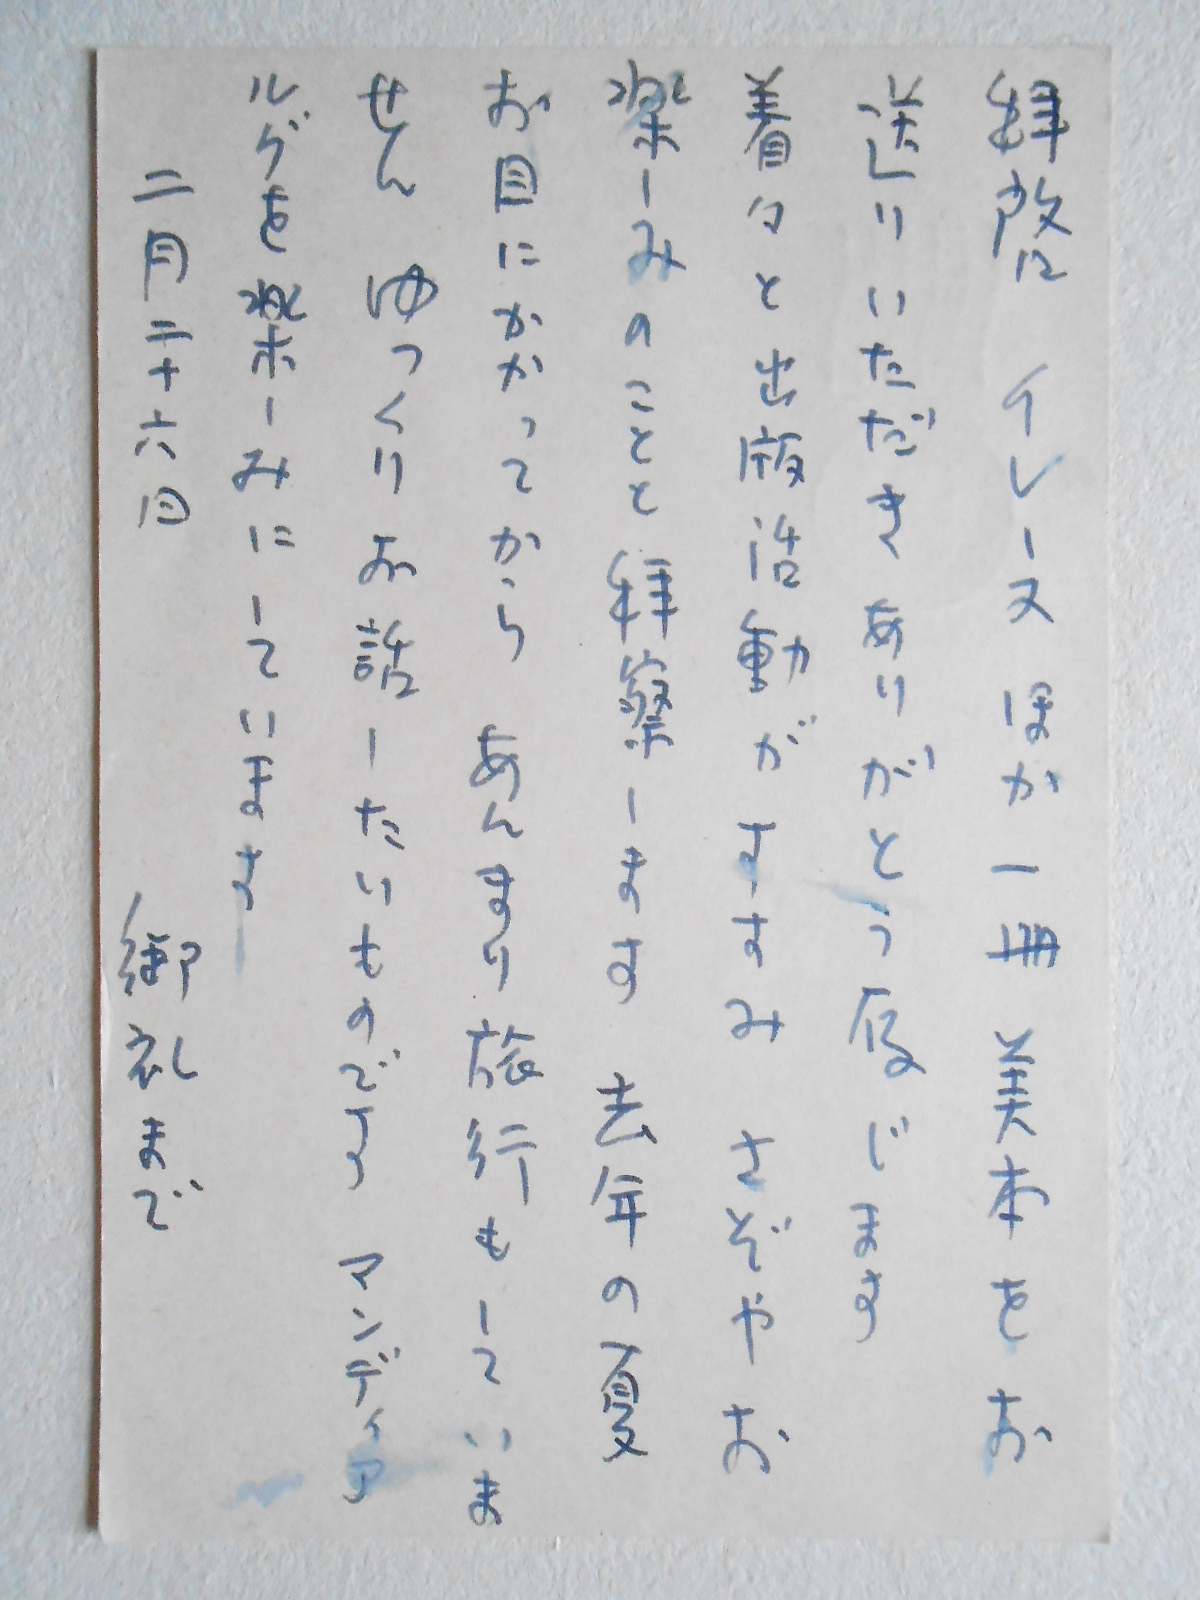 拝啓 イレーヌ ほか一冊 美本をお
送りいただきありがとう存じます
着々と出版活動がすすみ さぞやお
楽しみのことと拝察します 去年の夏
お目にかかってから あんまり旅行もしていま
せん ゆっくりお話したいものです マンディア
ルグを楽しみにしています
二月二十六日 御礼まで